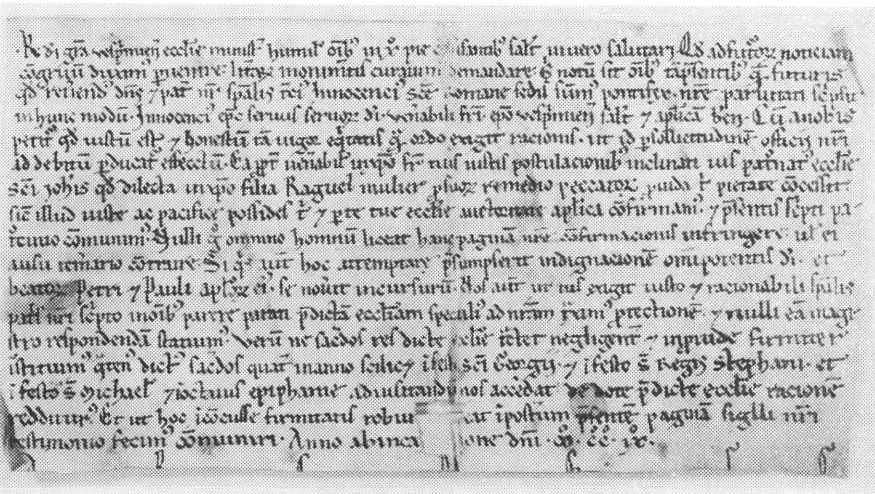 ·R· dī grā vesp̄mieñ ecclīe minist̄ humiľ oīb; in x̄ pie santib; saľt in vero salutari Qđ ad futoꝝ noticiam
cōgruū duxim᷒ ꝑuenire lit̄ꝝ monim̄tis curauim᷒ demandare notū sit oīb; tā p̄sentib; q̄m futuris
qđ reūend᷒ dn̄s ⁊ pat̄ nr̄ sp̄alis Innocenci᷒ sc̄e romane sedis sūm᷒ pontifex nr̄e paruitati sc̄psit
in hunc modū. Innocenci᷒ ep̄c seruus seruoꝝ dī. ven̄abili fr̄i ep̄o vesp̄mieñ saľt ⁊ apľicā beñ. Cū a nobis
petit᷒ qđ iustū est ⁊ honestū tā vigor eq̄tatis q̄m ordo exigit racionis. ut id ꝑ sollicitudinē officii nr̄i
ad debitū ꝑducat᷒ effectū. Ea ꝓpt̄ ven̄abiľ in xp̄o fr̄ tuis iustis postulacionib; inclinati ius pat̄nat᷒ ecclīe
sc̄i joħis qđ dilecta in xp̄o filia Raguel mulier ꝓ suoꝝ remedio peccatoꝝ ꝓuida t᷒ pietate cōcessit
sic̄ illud iuste ac pacifice possides t᷒ ⁊ ꝑ te tue ecclīe auctoritate apľica cōfirmam᷒. ⁊ p̄sentis sc̄pti pa-
t̄cinio cōmunim᷒. Nulli ḡ omnino hominū liceat hanc paginā nr̄e cōfirmacionis infringere uľ ei
ausu tem̄ario cōtraire. Si q᷒s aūt hoc attemptare p̄sumpserit indignacionē omīpotentis dī. et
beatoꝝ Petri ⁊ Pauli apľoꝝ ei᷒ se nou̾it incursurū. Nos aūt ut ius exigit iusto ⁊ racionabili sp̄alis
pat̄s nr̄i sc̄pto in oīb; parere parati p̄dictā eccľiam sp̄cali᷒ ad nr̄am t̄xim᷒ ꝓtectionē. ⁊ nulli eā magi
stro respondendā statuim᷒. Verū ne sac̄dos res dicte ecclīe t̄ctet negligent̄ ⁊ inꝓuide firmiter
īstituim᷒ q̄ten᷒ dict᷒ sac̄dos quat̄ in anno scilic; ī festo sc̄i Georgii. ⁊ ī festo s̄ Regis Stephani. et
ī festo s̄ Michaeľ ⁊ ī octauis epiphanie ad uisitandū nos accedat de dote p̄dicte ecclīe racionē
redditur᷒. Et ut hoc īcōcusse firmitatis robur at ī post̄um p̄sentē paginā sigilli nr̄i
testimonio fecim᷒ cōmuniri. Anno ab inca one dn̄i. ꝏ. c̄c̄. ix.